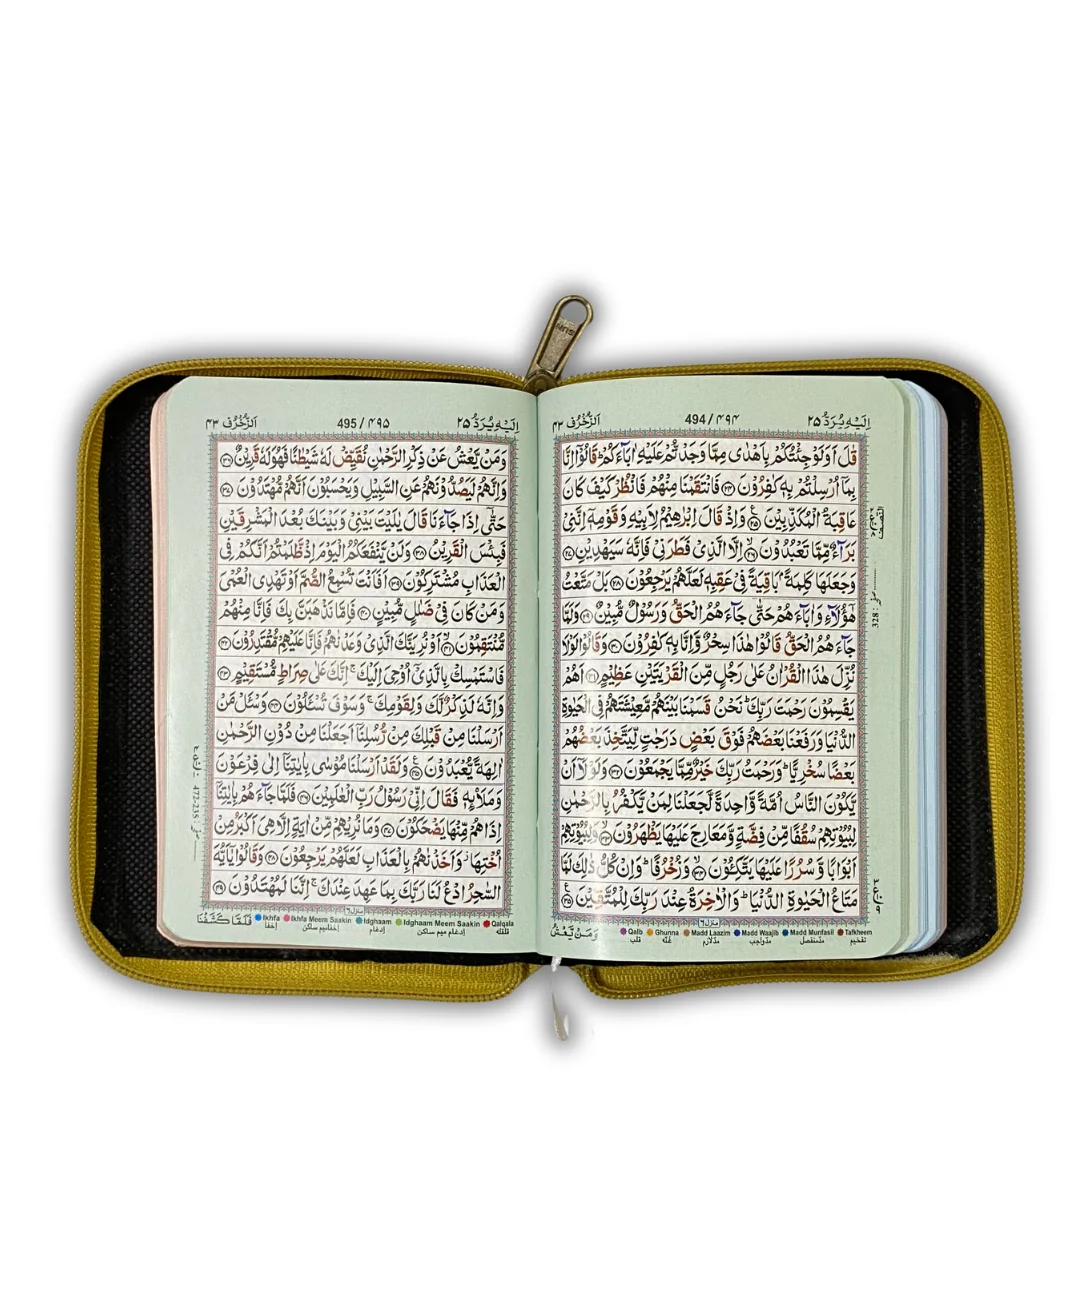 اِلَيْهِ يُرَدُّ ۲۵
494 / ۴۹۴
اَلزُّخْرُف ۴۳
قٰلَ اَوَلَوْ جِئْتُكُمْ بِاَهْدٰى مِمَّا وَجَدْتُّمْ عَلَيْهِ اٰبَآءَكُمْ ؕ قَالُوْۤا اِنَّا
بِمَاۤ اُرْسِلْتُمْ بِهٖ كٰفِرُوْنَ ۲۴ فَانْتَقَمْنَا مِنْهُمْ فَانْظُرْ كَيْفَ كَانَ
عَاقِبَةُ الْمُكَذِّبِيْنَ ۲۵ وَاِذْ قَالَ اِبْرٰهِيْمُ لِاَبِيْهِ وَقَوْمِهٖۤ اِنَّنِيْ
بَرَآءٌ مِّمَّا تَعْبُدُوْنَ ۲۶ اِلَّا الَّذِيْ فَطَرَنِيْ فَاِنَّهٗ سَيَهْدِيْنِ ۲۷
وَجَعَلَهَا كَلِمَةًۢ بَاقِيَةً فِيْ عَقِبِهٖ لَعَلَّهُمْ يَرْجِعُوْنَ ۲۸ بَلْ مَتَّعْتُ
هٰۤؤُلَآءِ وَاٰبَآءَهُمْ حَتّٰى جَآءَهُمُ الْحَقُّ وَرَسُوْلٌ مُّبِيْنٌ ۲۹ وَلَمَّا
جَآءَهُمُ الْحَقُّ قَالُوْا هٰذَا سِحْرٌ وَّاِنَّا بِهٖ كٰفِرُوْنَ ۳۰ وَقَالُوْا لَوْلَا
نُزِّلَ هٰذَا الْقُرْاٰنُ عَلٰى رَجُلٍ مِّنَ الْقَرْيَتَيْنِ عَظِيْمٍ ۳۱ اَهُمْ
يَقْسِمُوْنَ رَحْمَتَ رَبِّكَ ؕ نَحْنُ قَسَمْنَا بَيْنَهُمْ مَّعِيْشَتَهُمْ فِى الْحَيٰوةِ
الدُّنْيَا وَرَفَعْنَا بَعْضَهُمْ فَوْقَ بَعْضٍ دَرَجٰتٍ لِّيَتَّخِذَ بَعْضُهُمْ
بَعْضًا سُخْرِيًّا ؕ وَرَحْمَتُ رَبِّكَ خَيْرٌ مِّمَّا يَجْمَعُوْنَ ۳۲ وَلَوْلَاۤ اَنْ
يَّكُوْنَ النَّاسُ اُمَّةً وَّاحِدَةً لَّجَعَلْنَا لِمَنْ يَّكْفُرُ بِالرَّحْمٰنِ
لِبُيُوْتِهِمْ سُقُفًا مِّنْ فِضَّةٍ وَّمَعَارِجَ عَلَيْهَا يَظْهَرُوْنَ ۳۳ وَلِبُيُوْتِهِمْ
اَبْوَابًا وَّسُرُرًا عَلَيْهَا يَتَّكِـُٔوْنَ ۳۴ وَزُخْرُفًا ؕ وَاِنْ كُلُّ ذٰلِكَ لَمَّا
مَتَاعُ الْحَيٰوةِ الدُّنْيَا ؕ وَالْاٰخِرَةُ عِنْدَ رَبِّكَ لِلْمُتَّقِيْنَ ۳۵
منزل ۶
وَمَنْ يَّعْشُ
Qalb Ghunna Madd Laazim Madd Waajib Madd Munfasil Tafkheem
قلب غنّه مدّلازم مدّواجب مدّمنفصل تفخيم
328
اِلَيْهِ يُرَدُّ ۲۵
495 / ۴۹۵
اَلزُّخْرُف ۴۳
وَمَنْ يَّعْشُ عَنْ ذِكْرِ الرَّحْمٰنِ نُقَيِّضْ لَهٗ شَيْطٰنًا فَهُوَ لَهٗ قَرِيْنٌ ۳۶
وَاِنَّهُمْ لَيَصُدُّوْنَهُمْ عَنِ السَّبِيْلِ وَيَحْسَبُوْنَ اَنَّهُمْ مُّهْتَدُوْنَ ۳۷
حَتّٰىۤ اِذَا جَآءَنَا قَالَ يٰلَيْتَ بَيْنِيْ وَبَيْنَكَ بُعْدَ الْمَشْرِقَيْنِ
فَبِئْسَ الْقَرِيْنُ ۳۸ وَلَنْ يَّنْفَعَكُمُ الْيَوْمَ اِذْ ظَّلَمْتُمْ اَنَّكُمْ فِى
الْعَذَابِ مُشْتَرِكُوْنَ ۳۹ اَفَاَنْتَ تُسْمِعُ الصُّمَّ اَوْ تَهْدِى الْعُمْيَ
وَمَنْ كَانَ فِيْ ضَلٰلٍ مُّبِيْنٍ ۴۰ فَاِمَّا نَذْهَبَنَّ بِكَ فَاِنَّا مِنْهُمْ
مُّنْتَقِمُوْنَ ۴۱ اَوْ نُرِيَنَّكَ الَّذِيْ وَعَدْنٰهُمْ فَاِنَّا عَلَيْهِمْ مُّقْتَدِرُوْنَ ۴۲
فَاسْتَمْسِكْ بِالَّذِيْۤ اُوْحِيَ اِلَيْكَ ۚ اِنَّكَ عَلٰى صِرَاطٍ مُّسْتَقِيْمٍ ۴۳
وَاِنَّهٗ لَذِكْرٌ لَّكَ وَلِقَوْمِكَ ۚ وَسَوْفَ تُسْـَٔلُوْنَ ۴۴ وَسْـَٔلْ مَنْ
اَرْسَلْنَا مِنْ قَبْلِكَ مِنْ رُّسُلِنَاۤ اَجَعَلْنَا مِنْ دُوْنِ الرَّحْمٰنِ
اٰلِهَةً يُّعْبَدُوْنَ ۴۵ وَلَقَدْ اَرْسَلْنَا مُوْسٰى بِاٰيٰتِنَاۤ اِلٰى فِرْعَوْنَ
وَمَلَا۟ئِهٖ فَقَالَ اِنِّيْ رَسُوْلُ رَبِّ الْعٰلَمِيْنَ ۴۶ فَلَمَّا جَآءَهُمْ بِاٰيٰتِنَاۤ
اِذَا هُمْ مِّنْهَا يَضْحَكُوْنَ ۴۷ وَمَا نُرِيْهِمْ مِّنْ اٰيَةٍ اِلَّا هِيَ اَكْبَرُ مِنْ
اُخْتِهَا ؗ وَاَخَذْنٰهُمْ بِالْعَذَابِ لَعَلَّهُمْ يَرْجِعُوْنَ ۴۸ وَقَالُوْا يٰۤاَيُّهَ
السّٰحِرُ ادْعُ لَنَا رَبَّكَ بِمَا عَهِدَ عِنْدَكَ ۚ اِنَّنَا لَمُهْتَدُوْنَ ۴۹
منزل ۶
فَلَمَّا كَشَفْنَا
Ikhfa Ikhfa Meem Saakin Idghaam Idghaam Meem Saakin Qalqala
إخفا إخفا ميم ساكن إدغام إدغام ميم ساكن قلقله